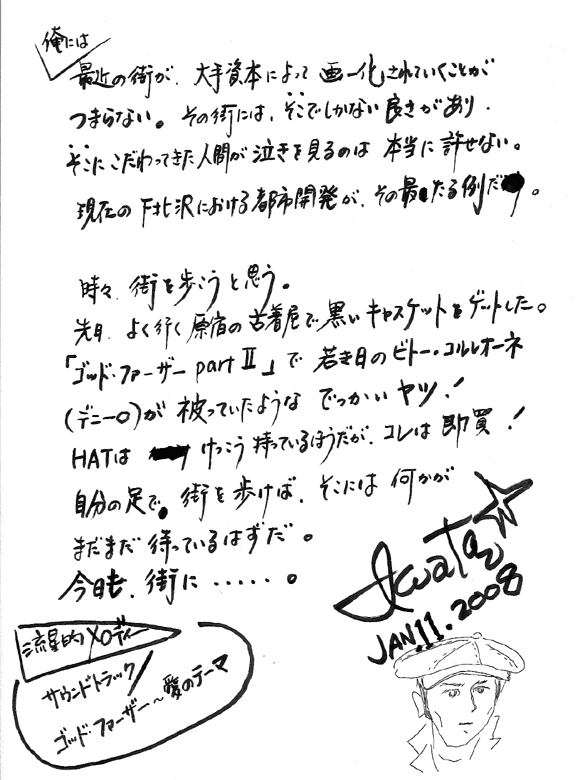 俺には
最近の街が、大手資本によって画一化されていくことが
つまらない。その街には、そこでしかない良さがあり、
そこにこだわってきた人間が泣きを見るのは本当に許せない。
現在の下北沢における都市開発が、その最たる例だ。
時々、街を歩こうと思う。
先日、よく行く原宿の古着屋で黒いキャスケットをゲットした。
「ゴッド・ファーザー part Ⅱ」で若き日のビトー・コルレオーネ
(デニーロ)が被っていたようなでっかいヤツ!
HATはけっこう持っているほうだが、コレは即買!
自分の足で、街を歩けば、そこには何かが
まだまだ待っているはずだ。
今日も、街に・・・・・。
Iwata
JAN.11.2008
流星的メロディー
サウンドトラック/
ゴッド・ファーザー~愛のテーマ